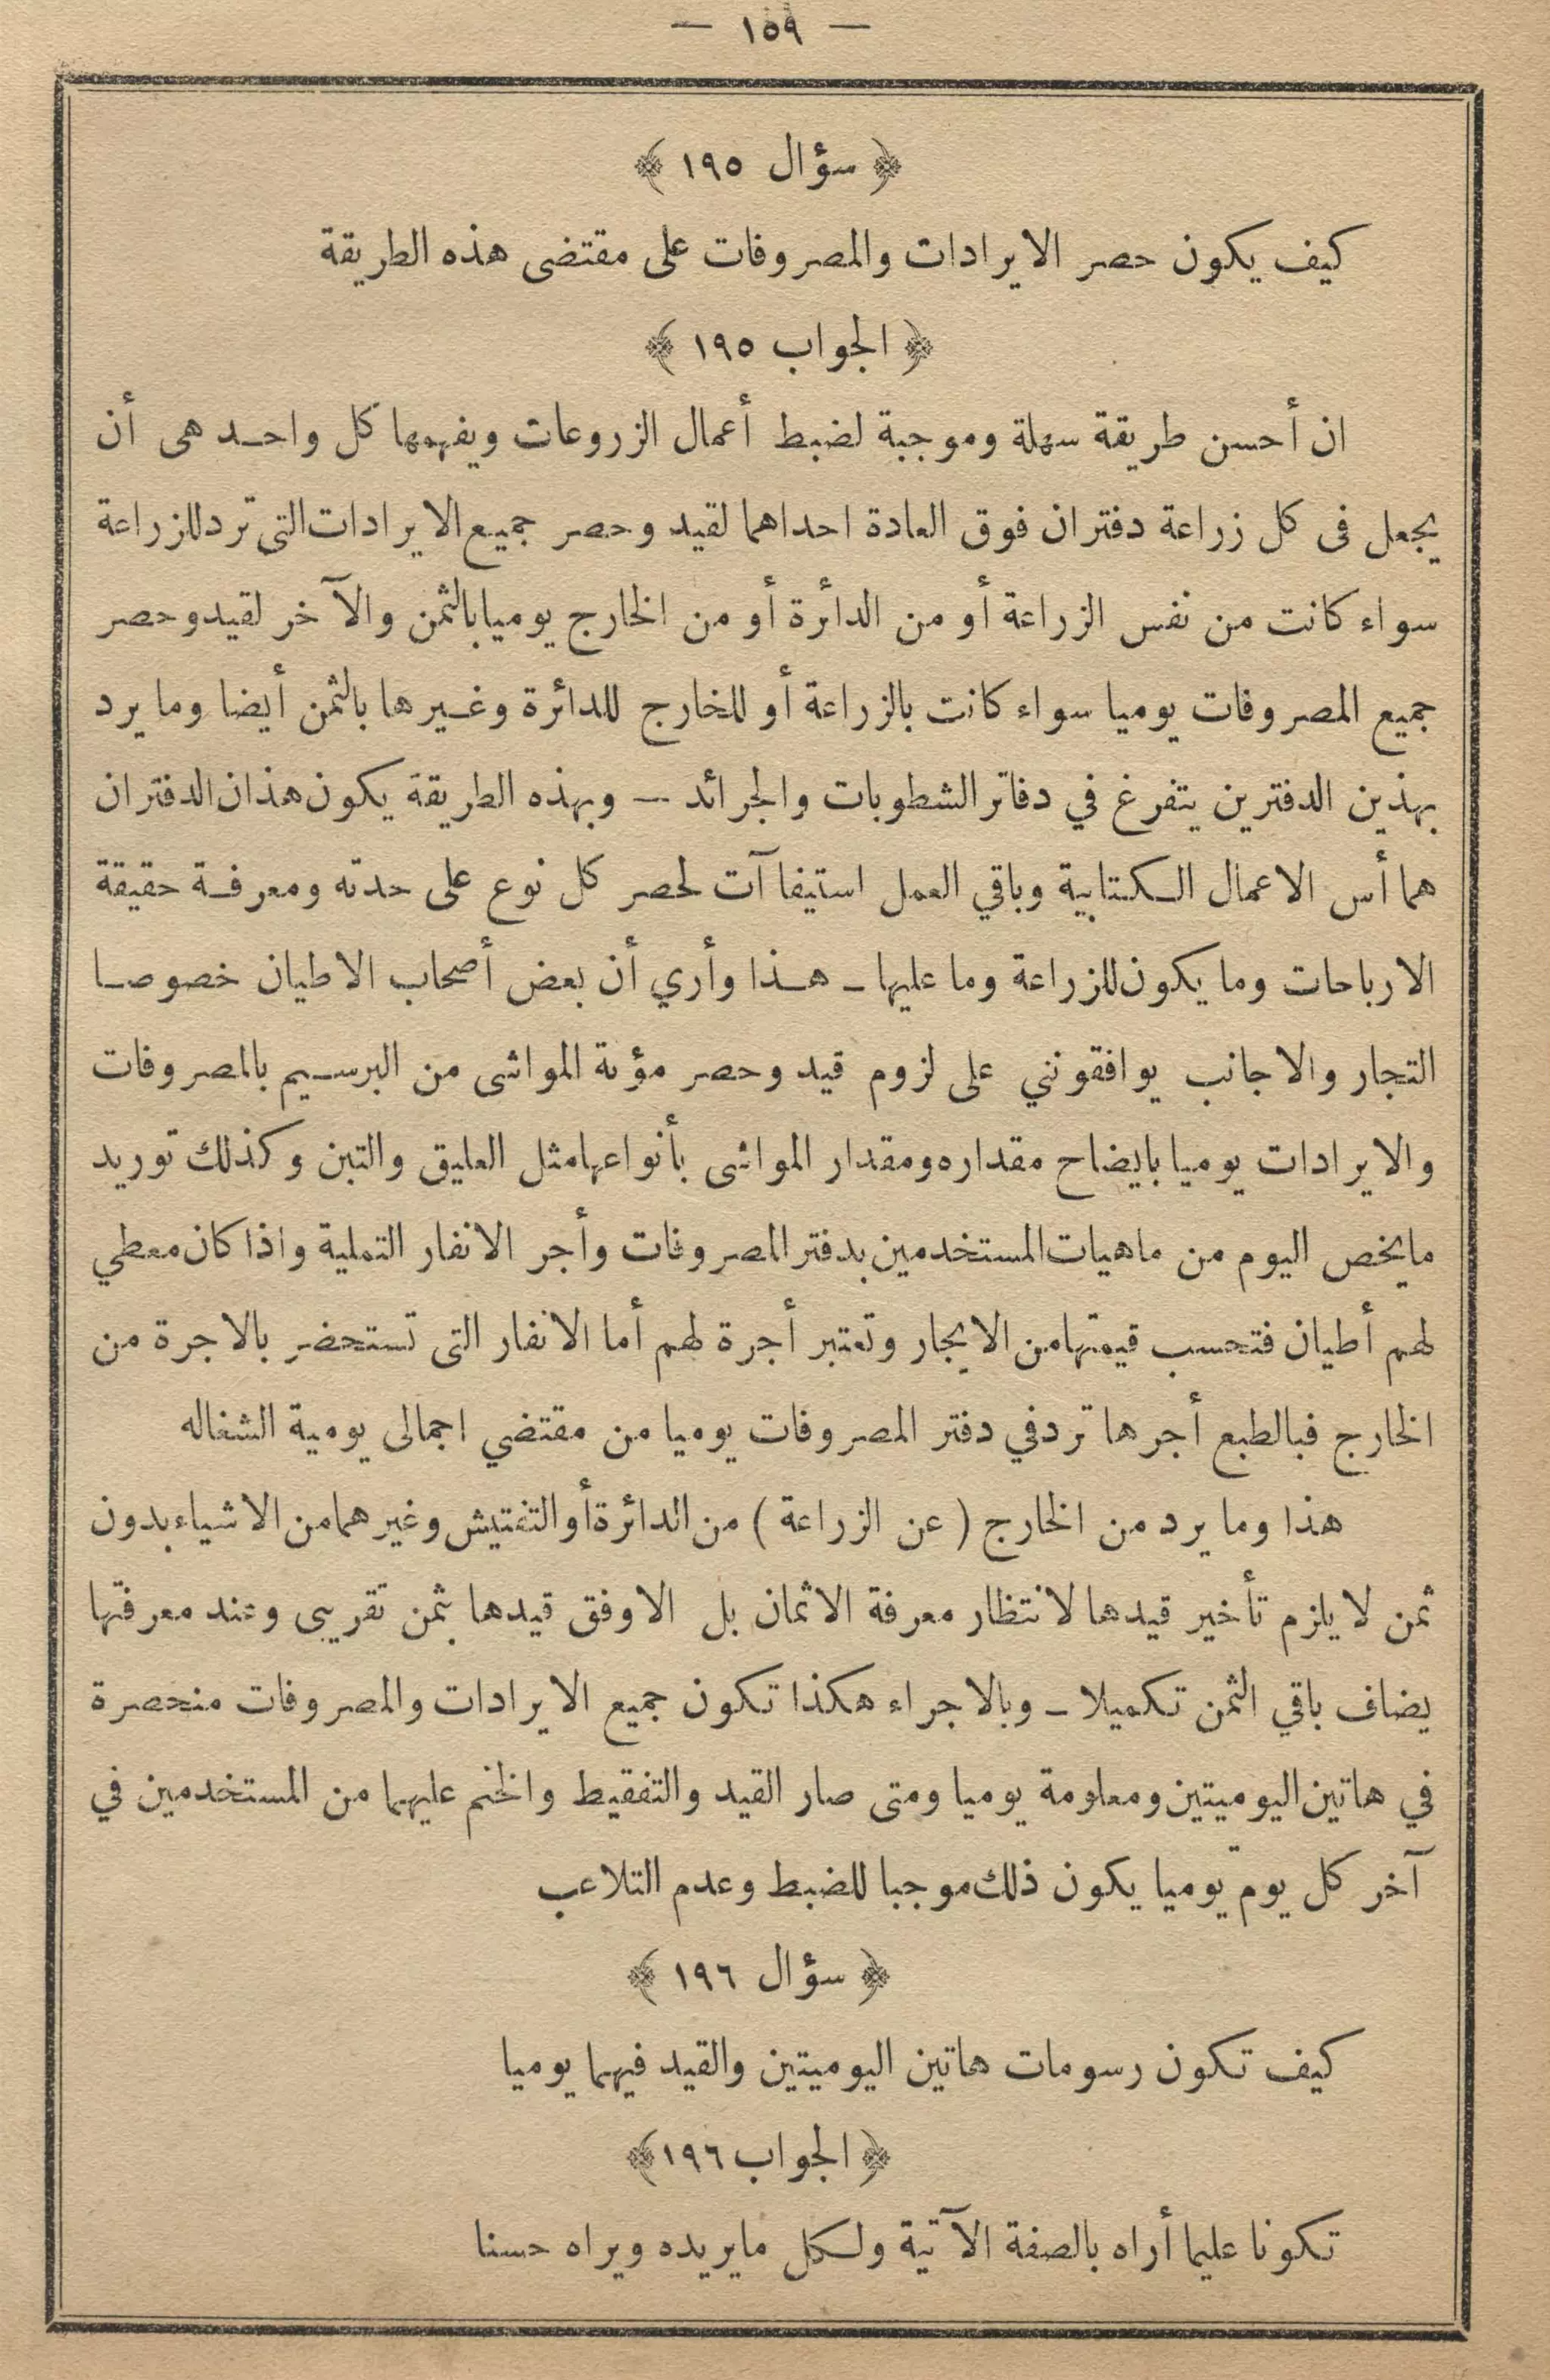 — ١٥٩ —
﴿ سؤال ١٩٥ ﴾
كيف يكون حصر الايرادات والمصروفات على مقتضى هذه الطريقة
﴿ الجواب ١٩٥ ﴾
ان أحسن طريقة سهلة وموجبة لضبط أعمال الزروعات ويفهمها كل واحد هى أن
يجعل فى كل زراعة دفتران فوق العادة احداهما لقيد وحصر جميع الايرادات التى ترد للزراعة
سواء كانت من نفس الزراعة أو من الدائرة أو من الخارج يوميا بالثمن والآخر لقيد وحصر
جميع المصروفات يوميا سواء كانت بالزراعة أو للخارج للدائرة وغيرها بالثمن أيضا وما يرد
بهذين الدفترين يتفرغ في دفاتر الشطوبات والجرائد — وبهذه الطريقة يكون هذان الدفتران
هما أس الاعمال الكتابية وباقي العمل استيفاآت لحصر كل نوع على حدته ومعرفة حقيقة
الارباحات وما يكون للزراعة وما عليها ـ هذا وأري أن بعض أصحاب الاطيان خصوصا
التجار والاجانب يوافقونني على لزوم قيد وحصر مؤنة المواشى من البرسيم بالمصروفات
والايرادات يوميا بايضاح مقداره ومقدار المواشى بأنواعها مثل العليق والتبن وكذلك توريد
مايخص اليوم من ماهيات المستخدمين بدفتر المصروفات وأجر الانفار التملية واذا كان معطي
لهم أطيان فتحسب قيمتها من الايجار وتعتبر أجرة لهم أما الانفار التى تستحضر بالاجرة من
الخارج فبالطبع أجرها ترد في دفتر المصروفات يوميا من مقتضي اجمالى يومية الشغاله
هذا وما يرد من الخارج ( عن الزراعة ) من الدائرة أو التفتيش وغيرهما من الاشياء بدون
ثمن لا يلزم تأخير قيدها لانتظار معرفة الاثمان بل الاوفق قيدها بثمن تقريبى وعند معرفتها
يضاف باقي الثمن تكميلا ـ وبالاجراء هكذا تكون جميع الايرادات والمصروفات منحصرة
في هاتين اليوميتين ومعلومة يوميا ومتى صار القيد والتفقيط والختم عليهما من المستخدمين في
آخر كل يوم يوميا يكون ذلك موجبا للضبط وعدم التلاعب
﴿ سؤال ١٩٦ ﴾
كيف تكون رسومات هاتين اليوميتين والقيد فيهما يوميا
﴿ الجواب ١٩٦ ﴾
تكونا عليما أراه بالصفة الآتية ولكل مايريده ويراه حسنا